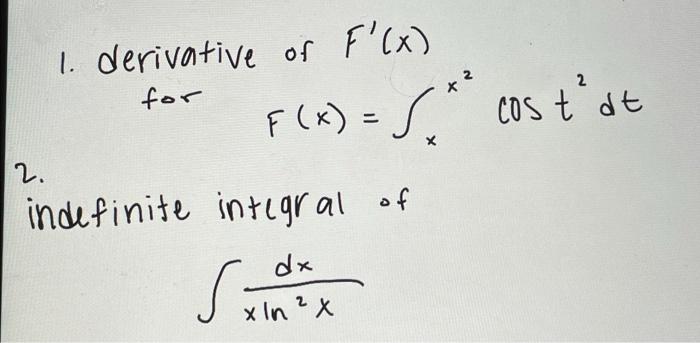 1. derivative of F'(x)
for
F(x) = ∫ₓ^x² cos t² dt
2.
indefinite integral of
∫ dx / x ln² x